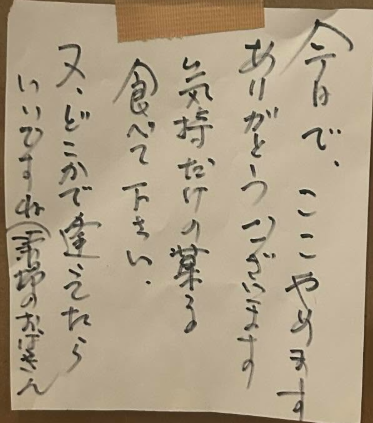 今日で、ここやめます
ありがとうございます
気持だけの菓子
食べて下さい、
又、どこかで逢えたら
いいですね のおばさん